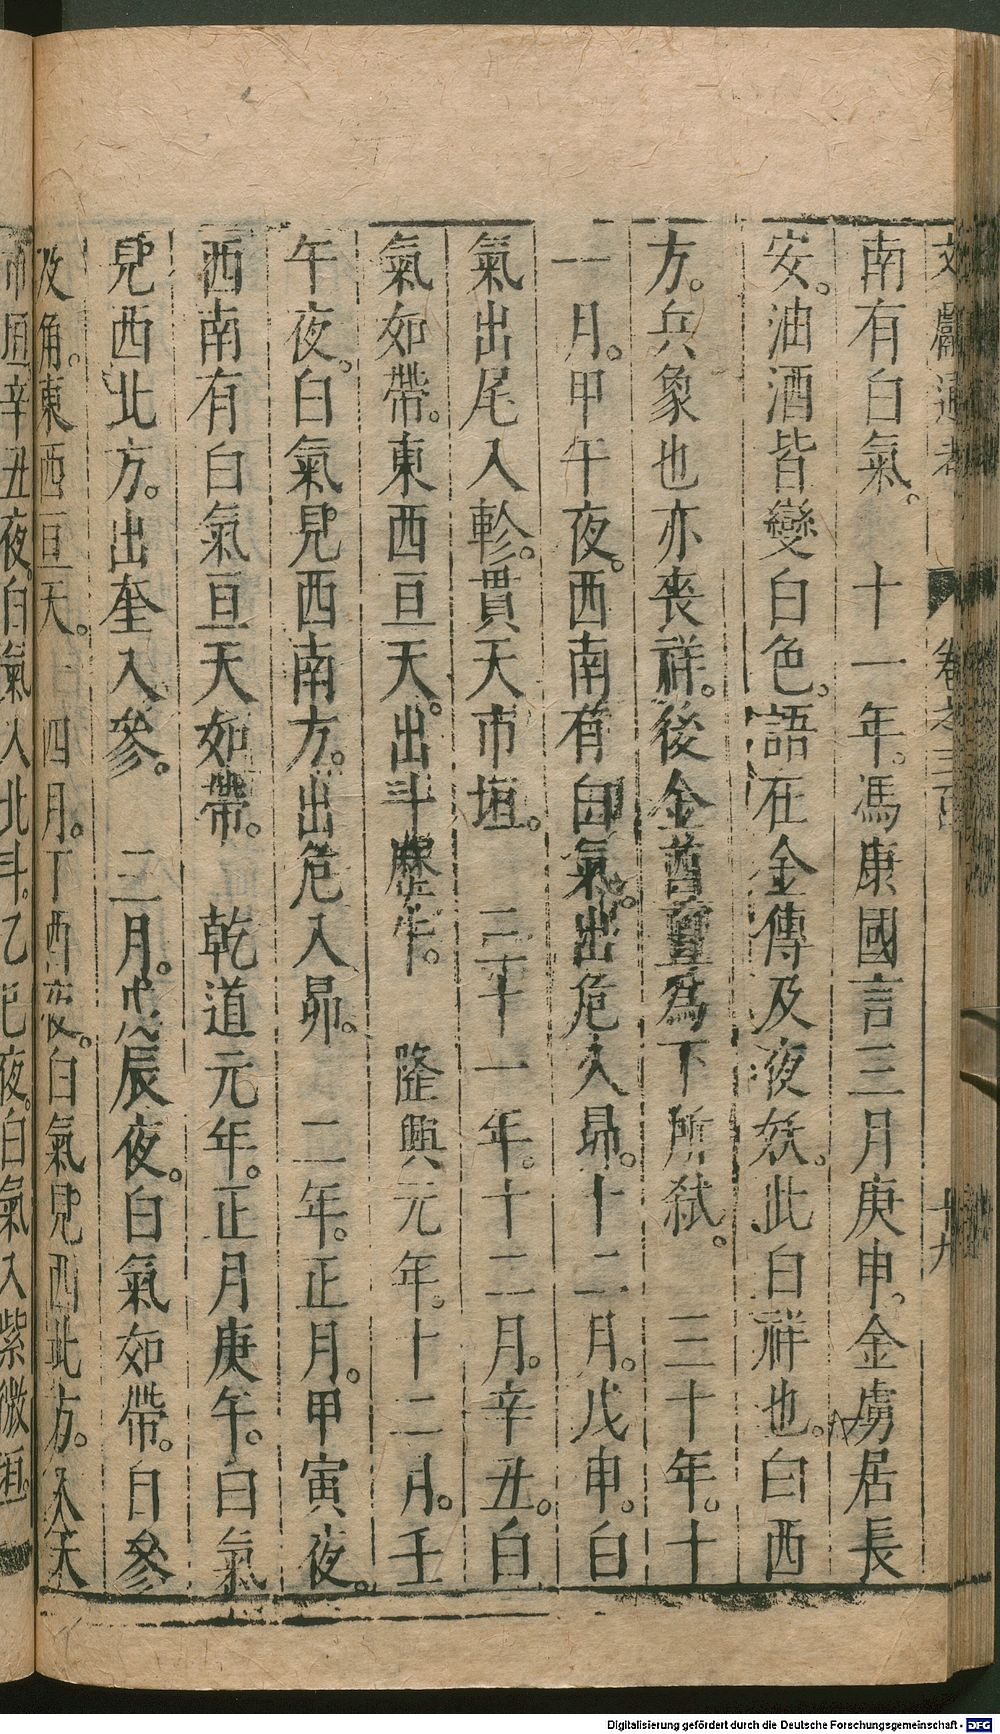 文獻通考 卷之三百 十九
南有白氣。 十一年。馮康國言三月庚申。金虜居長
安。油酒皆變白色。語在金傳及夜妖。此白祥也。白西
方。兵象也亦喪祥。後金酋亶爲下所弑。 三十年。十
一月。甲午夜。西南有白氣。出危入昴。十二月。戊申。白
氣出尾入軫。貫天市垣。 三十一年。十二月。辛丑。白
氣如帶。東西亘天。出斗歷牛。 隆興元年。十二月。壬
午夜。白氣見西南方。出危入昴。 二年。正月。甲寅夜。
西南有白氣亘天如帶。 乾道元年。正月庚午。白氣
見西北方。出奎入參。 三月。戊辰夜。白氣如帶。自參
及角。東西亘天。 四月。丁酉夜。白氣見西北方。入天
市垣辛丑夜。白氣入北斗。乙巳夜。白氣入紫微垣。
Digitalisierung gefördert durch die Deutsche Forschungsgemeinschaft - DFG